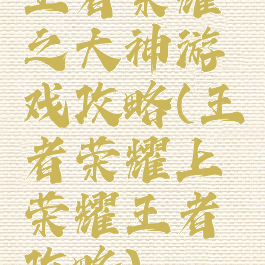 王者荣耀
之大神游
戏攻略(王
者荣耀上
荣耀王者
攻略)